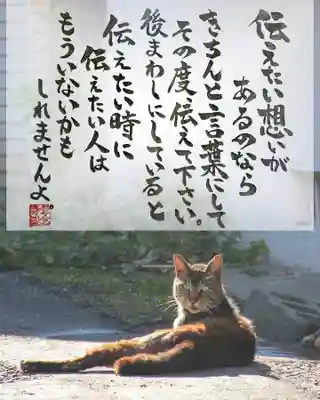 伝えたい想いが
あるのなら
きちんと言葉にして
その度、伝えて下さい。
後まわしにしていると
伝えたい時に
伝えたい人は
もういないかも
しれませんよ